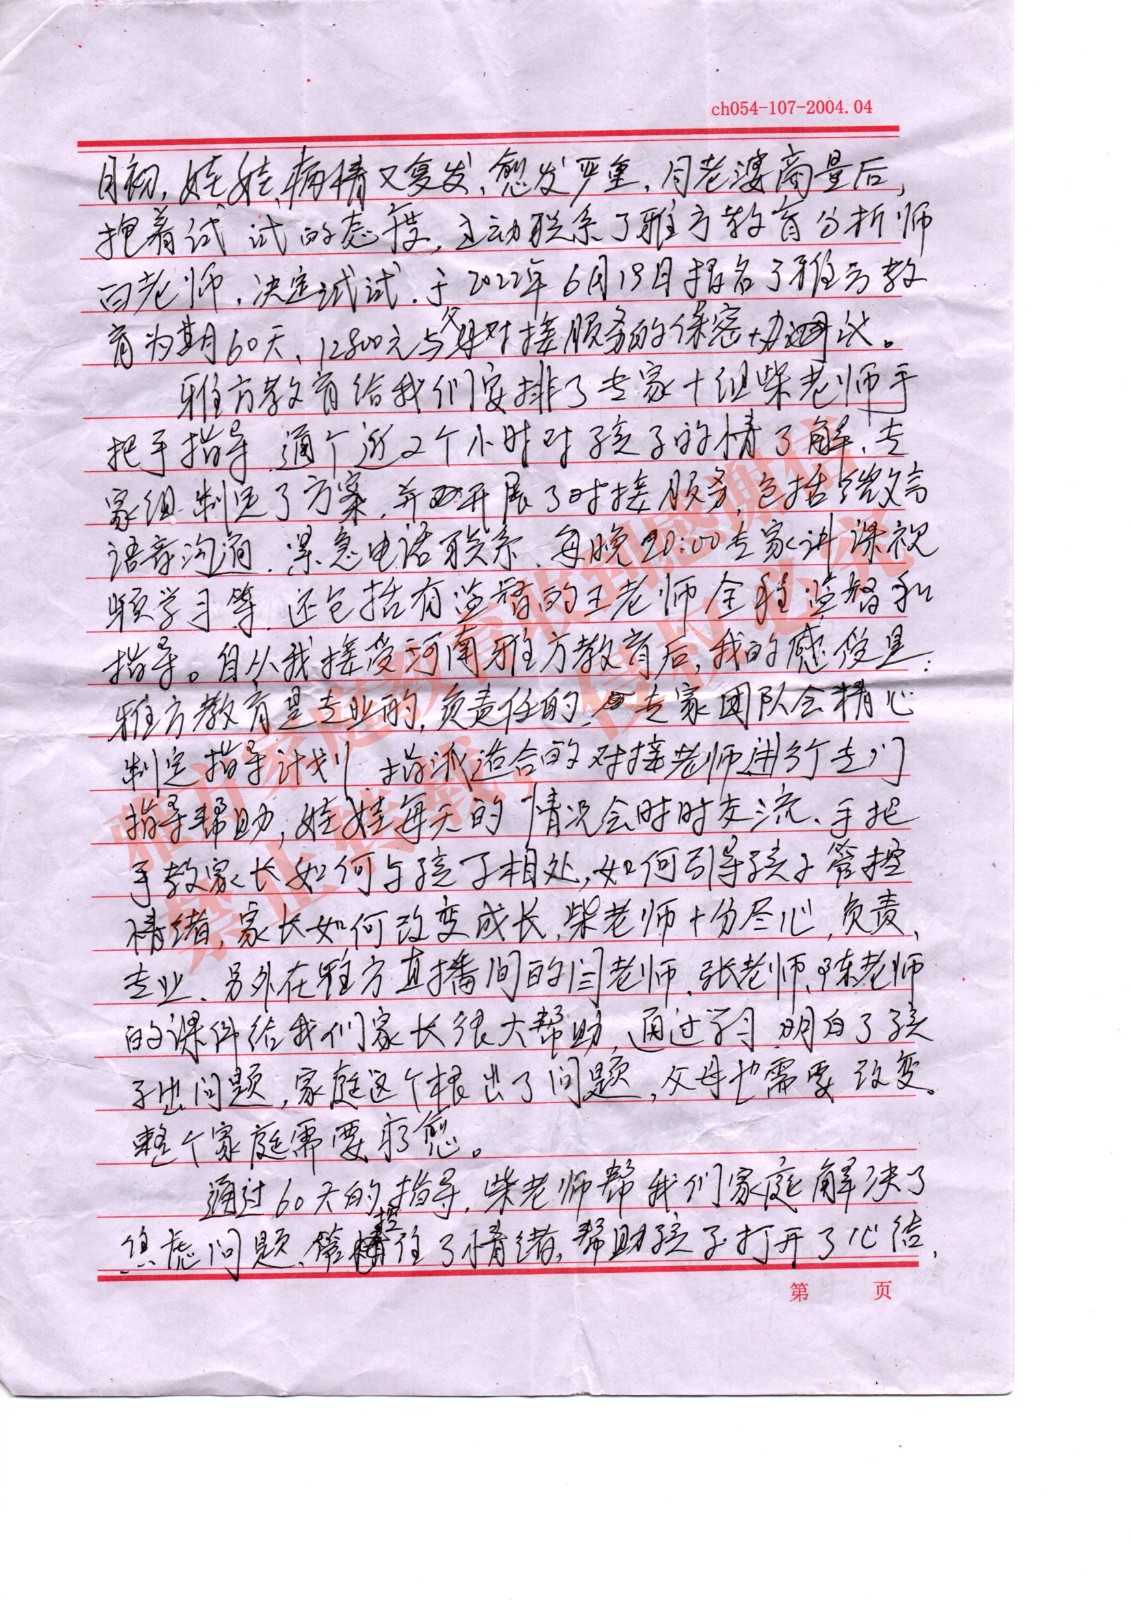 ch054-107-2004.04
月初，娃娃病情又复发、愈发严重，同老婆商量后，
抱着试试的态度，主动联系了雅方教育分析师
白老师，决定试试，于2022年6月19日报名了雅方教
育为期60天、12800元与父母对接服务的保密协议。
雅方教育给我们安排了专家十组柴老师手
把手指导，通个近2个小时对孩子的情了解，专
家组制定了方案，并开展了对接服务，包括微文
语音沟通，紧急电话联系，每晚20:00专家讲课视
频学习等，还包括有监督的王老师全程监督和
指导。自从我接受河南雅方教育后，我的感受是：
雅方教育是专业的，负责任的，专家团队会精心
制定指导计划，指派适合的对接老师进行专门
指导帮助，娃娃每天的情况会时时交流、手把
手教家长如何与孩子相处，如何引导孩子管控
情绪，家长如何改变成长，柴老师十分尽心，负责、
专业、另外在雅方直播间的闫老师、张老师、陈老师
的课件给我们家长很大帮助，通过学习，明白了孩
子出问题，家庭这个根出了问题，父母也需要改变。
整个家庭需要疗愈。
通过60天的指导，柴老师帮我们家庭解决了
焦虑问题、管控住了情绪，帮助孩子打开了心结，
第 页
雅方家庭教育收到感谢信
禁止转载，侵权必究